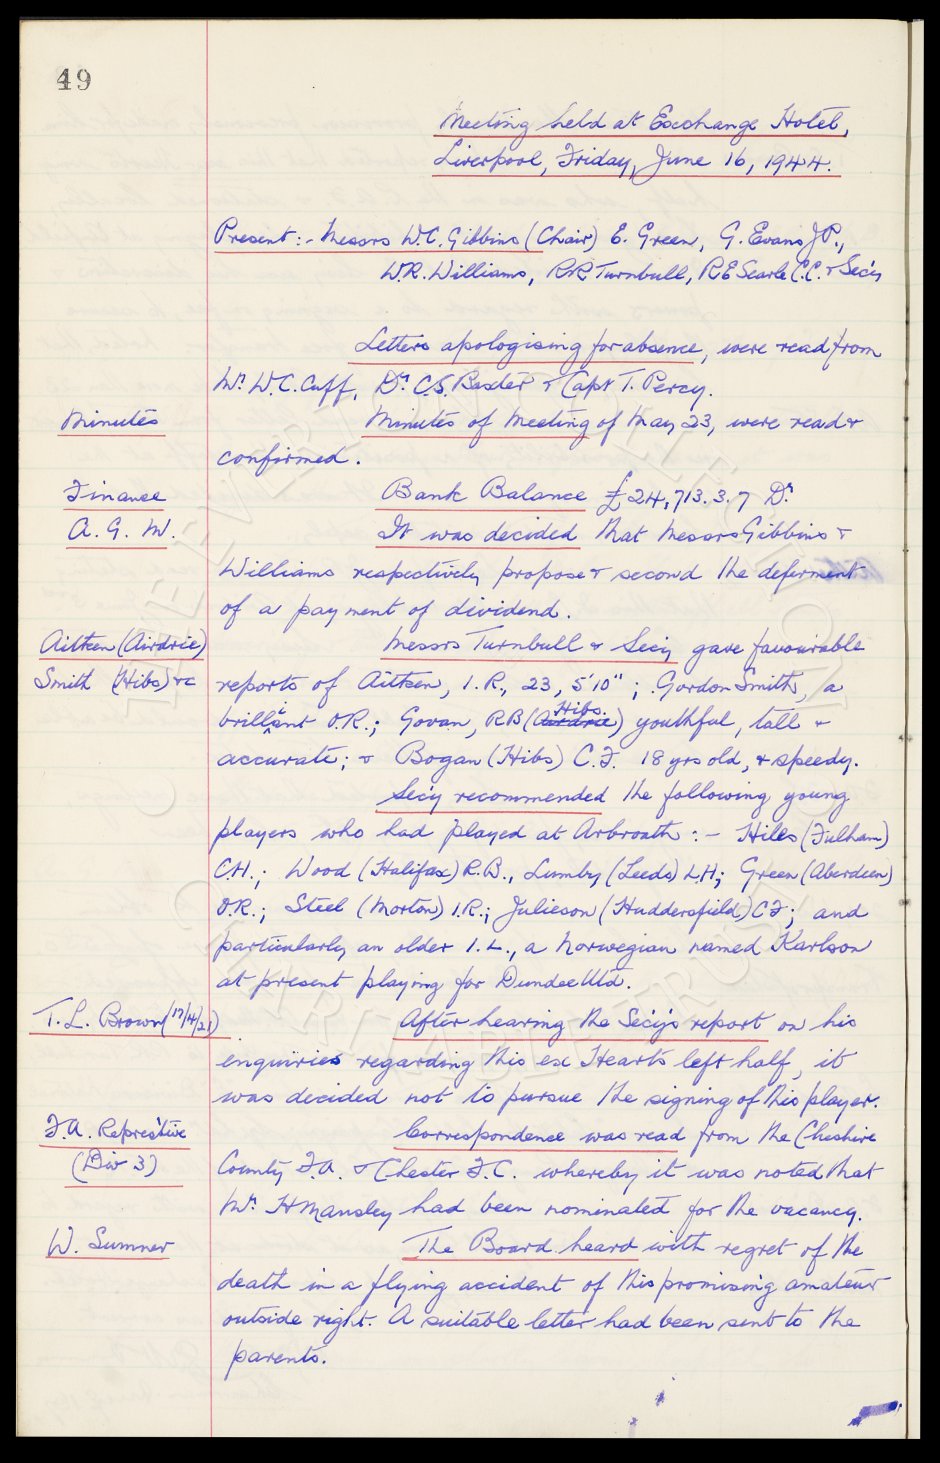 49
Meeting held at Exchange Hotel,
Liverpool, Friday, June 16, 1944.
Present:- Messrs W.C. Gibbins (Chair) E. Green, G. Evans J.P.,
W.R. Williams, R.R. Turnbull, R E Searle C.C. & Sec'y
Letters apologising for absence, were read from
Mr. W.C. Cuff, Dr. C.S. Baxter & Capt T. Percy.
Minutes
Minutes of Meeting of May 23, were read &
confirmed.
Finance
Bank Balance £24,713.3.7 Dr.
A. G. M.
It was decided that Messrs Gibbins &
Williams respectively propose & second the deferment
of a payment of dividend.
Aitken (Airdrie)
Messrs Turnbull & Sec'y gave favourable
Smith (Hibs) &c
reports of Aitken, I.R., 23, 5'10"; Gordon Smith, a
brilliant O.R.; Govan, R B (Airdrie Hibs.) youthful, tall &
accurate; & Bogan (Hibs) C.F. 18 yrs old, & speedy.
Sec'y recommended the following young
players who had played at Arbroath:- Hiles (Fulham)
C.H.; Wood (Halifax) R.B., Lumby (Leeds) L.H; Green (Aberdeen)
O.R.; Steel (Morton) I.R.; Julieson (Huddersfield) C F; and
particularly an older I.L., a Norwegian named Karlson
at present playing for Dundee Utd.
T. L. Brown (17/4/21)
After hearing the Sec'y's report on his
enquiries regarding this ex Hearts left half, it
was decided not to pursue the signing of this player.
F.A. Repres'tive
Correspondence was read from the Cheshire
(Div 3)
County F.A. & Chester F.C. whereby it was noted that
Mr. H Mansley had been nominated for the vacancy.
W. Sumner
The Board heard with regret of the
death in a flying accident of this promising amateur
outside right. A suitable letter had been sent to the
parents.
THE EVERTON COLLECTION CHARITABLE TRUST